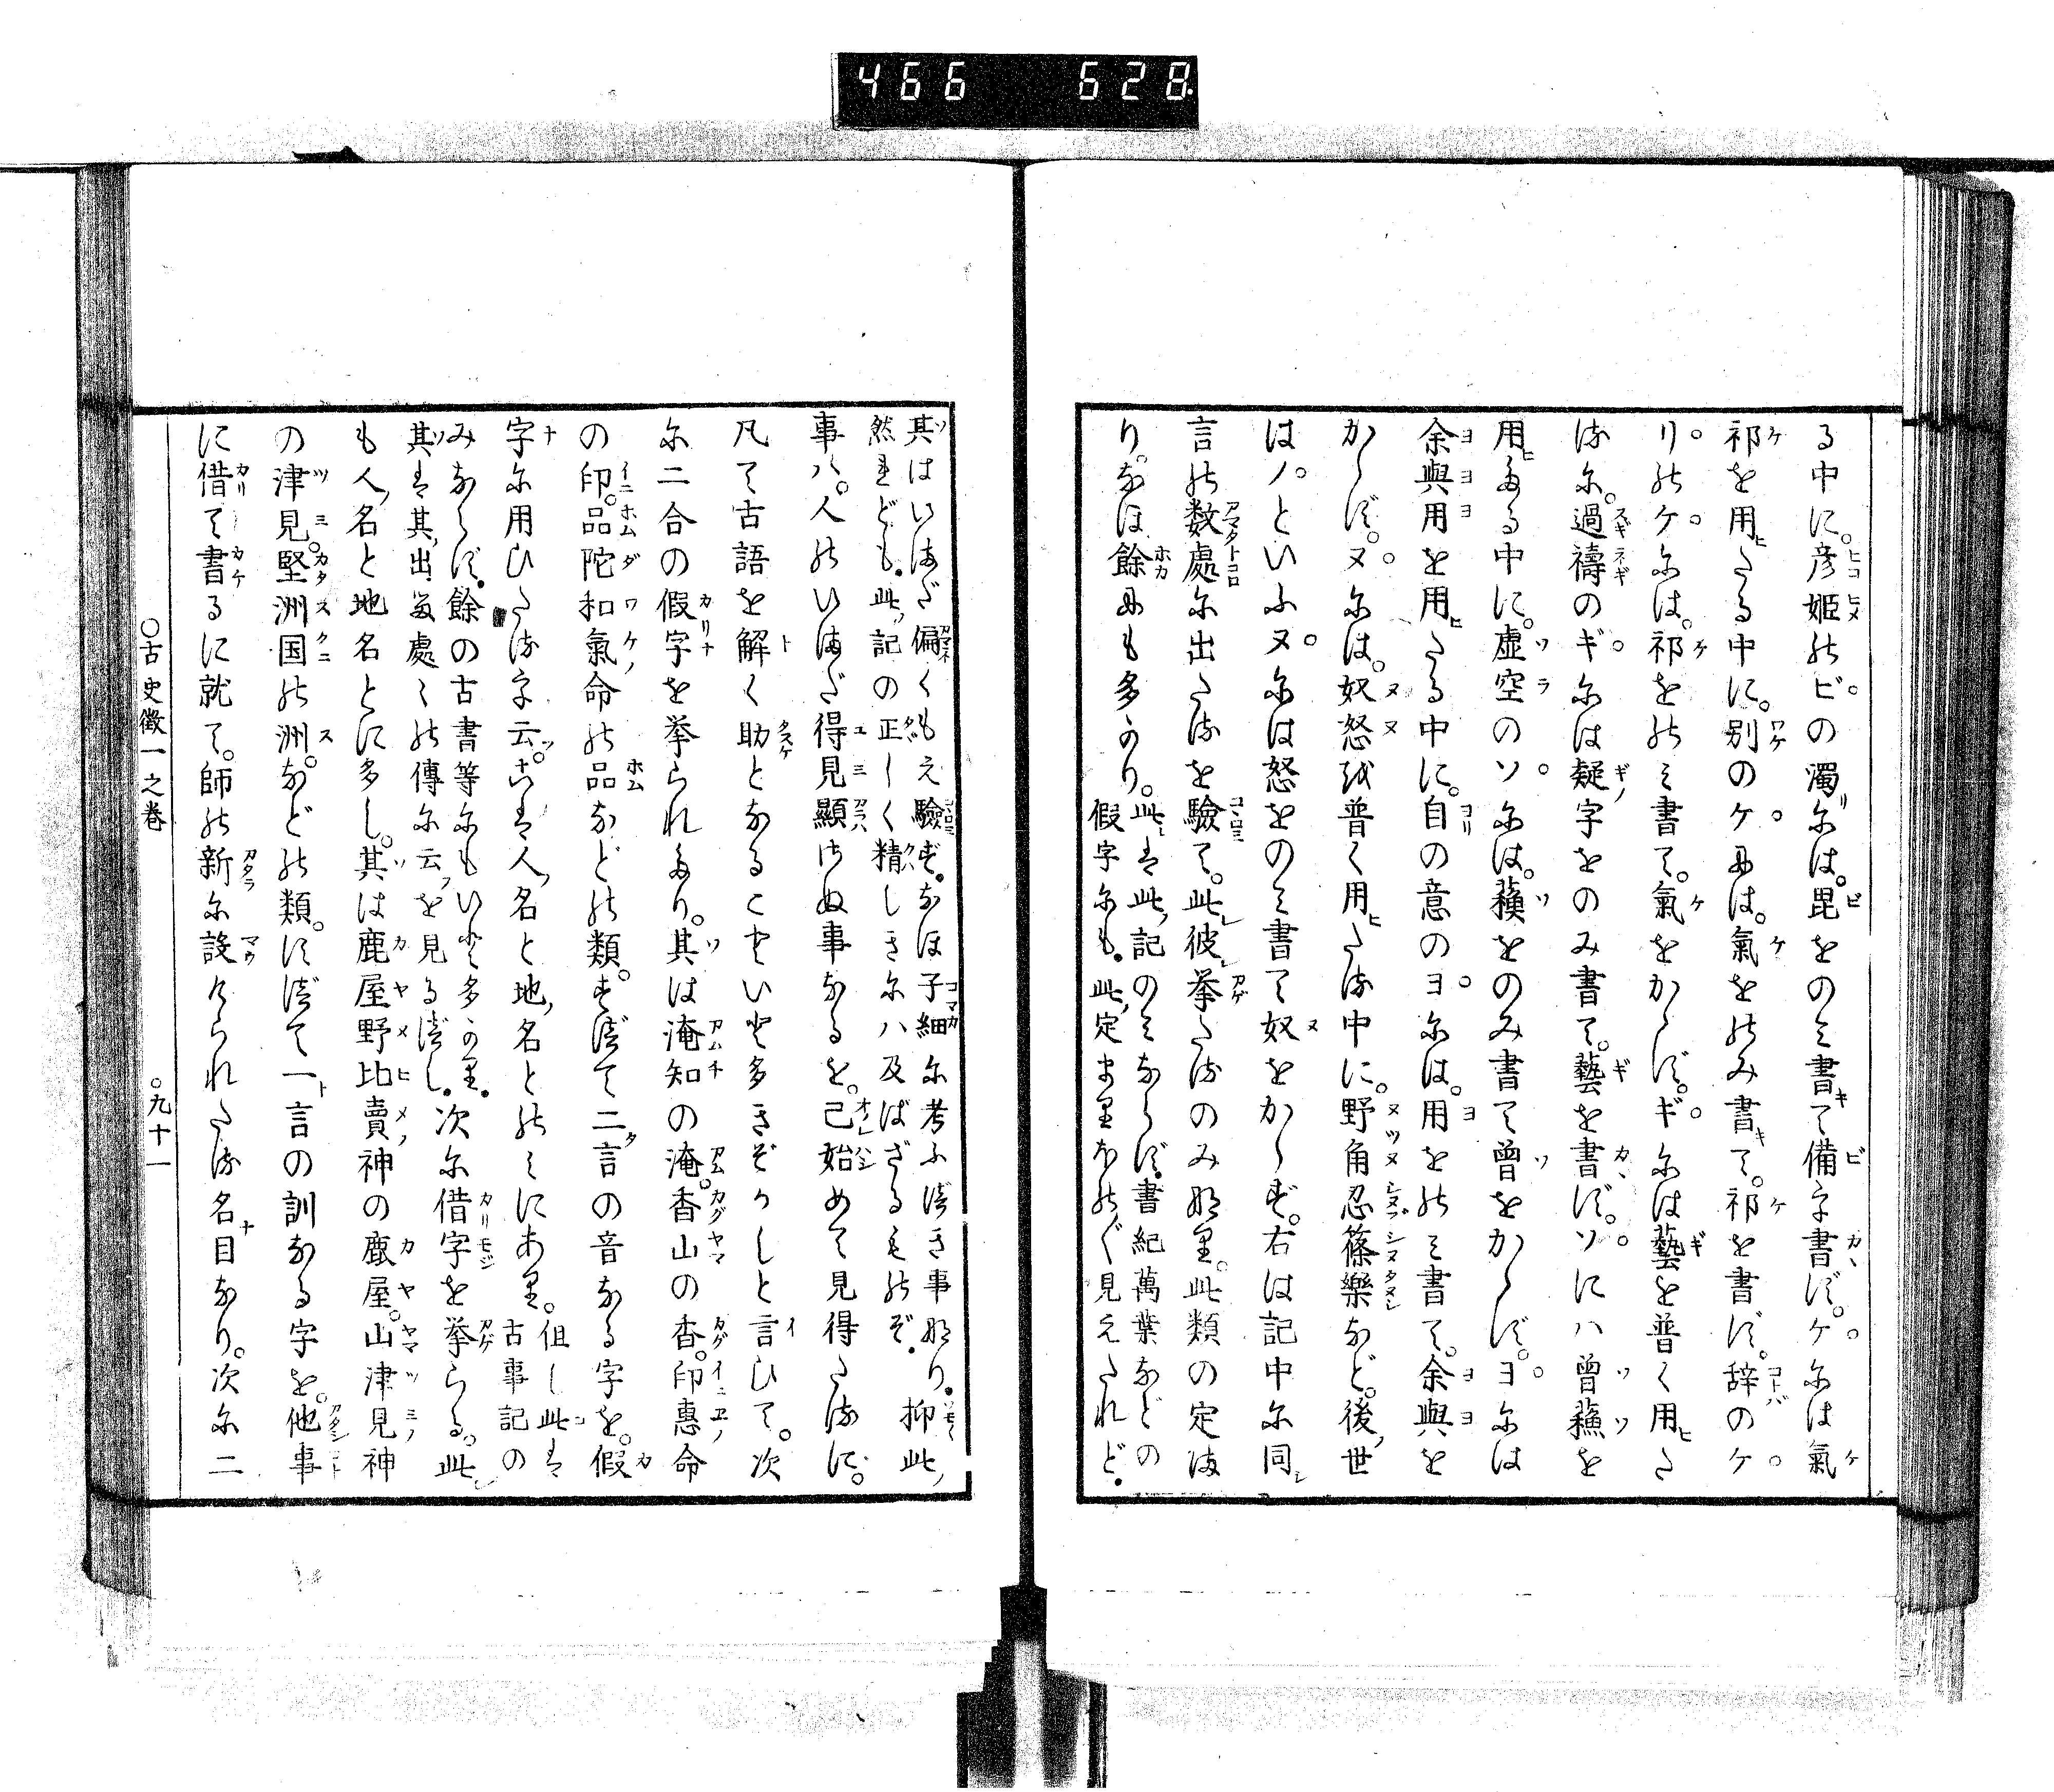 466 628
る中に。彦姫のビの濁りには。毘をのみ書きて備字書かゝず。ケには氣
祁を用ひたる中に。別のケには。氣をのみ書きて。祁を書ず。辞のケ
リのケには。祁をのみ書て。氣をかゝず。ギには藝を普く用ひた
るに。過禱のギには疑字をのみ書て。藝を書ず。ソにハ曽蘓を
用ひたる中に。虚空のソには。蘓をのみ書て曽をかゝず。ヨには
余與用を用ひたる中に。自の意のヨには。用をのみ書て。余與を
かゝず。ヌには。奴怒を普く用ひたる中に。野角忍篠樂など。後ノ世
はノ。といふヌには怒をのみ書て奴をかゝず。右は記中に同し
言の数處に出たるを驗て。此レ彼レ挙たるのみなり。此類の定ま
り。なほ餘にも多かり。
此は此ノ記のみならず。書紀萬葉などの
假字にも。此ノ定まりほのぐ見えたれど。
其はいまだ偏くもえ驗ず。なほ子細に考ふべき事なり。抑此ノ
然れども。此ノ記の正しく精しきにハ及ばざるものぞ。
事ハ。人のいまだ得見顯さぬ事なるを。己始めて見得たるに。
凡て古語を解く助となることいと多きぞかしと言ひて。次
に二合の假字を挙られたり。其は淹知の淹。香山の香。印惠命
の印。品陀和氣命の品などの類。すべて二言の音なる字を。假
字に用ひたる字云。こは人ノ名と地ノ名とのみにあり。
但し此は
古事記の
みならず。餘の古書等にもいと多かり。
其は其ノ出たる處々の傳に云ふを見るべし。
次に借字を挙らる。此レ
も人ノ名と地名とに多し。其は鹿屋野比賣神の鹿屋。山津見神
の津見。堅洲国の洲。などの類。すべて一言の訓なる字を。他事
に借て書るに就て。師の新に設けられたる名目なり。次に二
○古史徴一之巻
○九十一